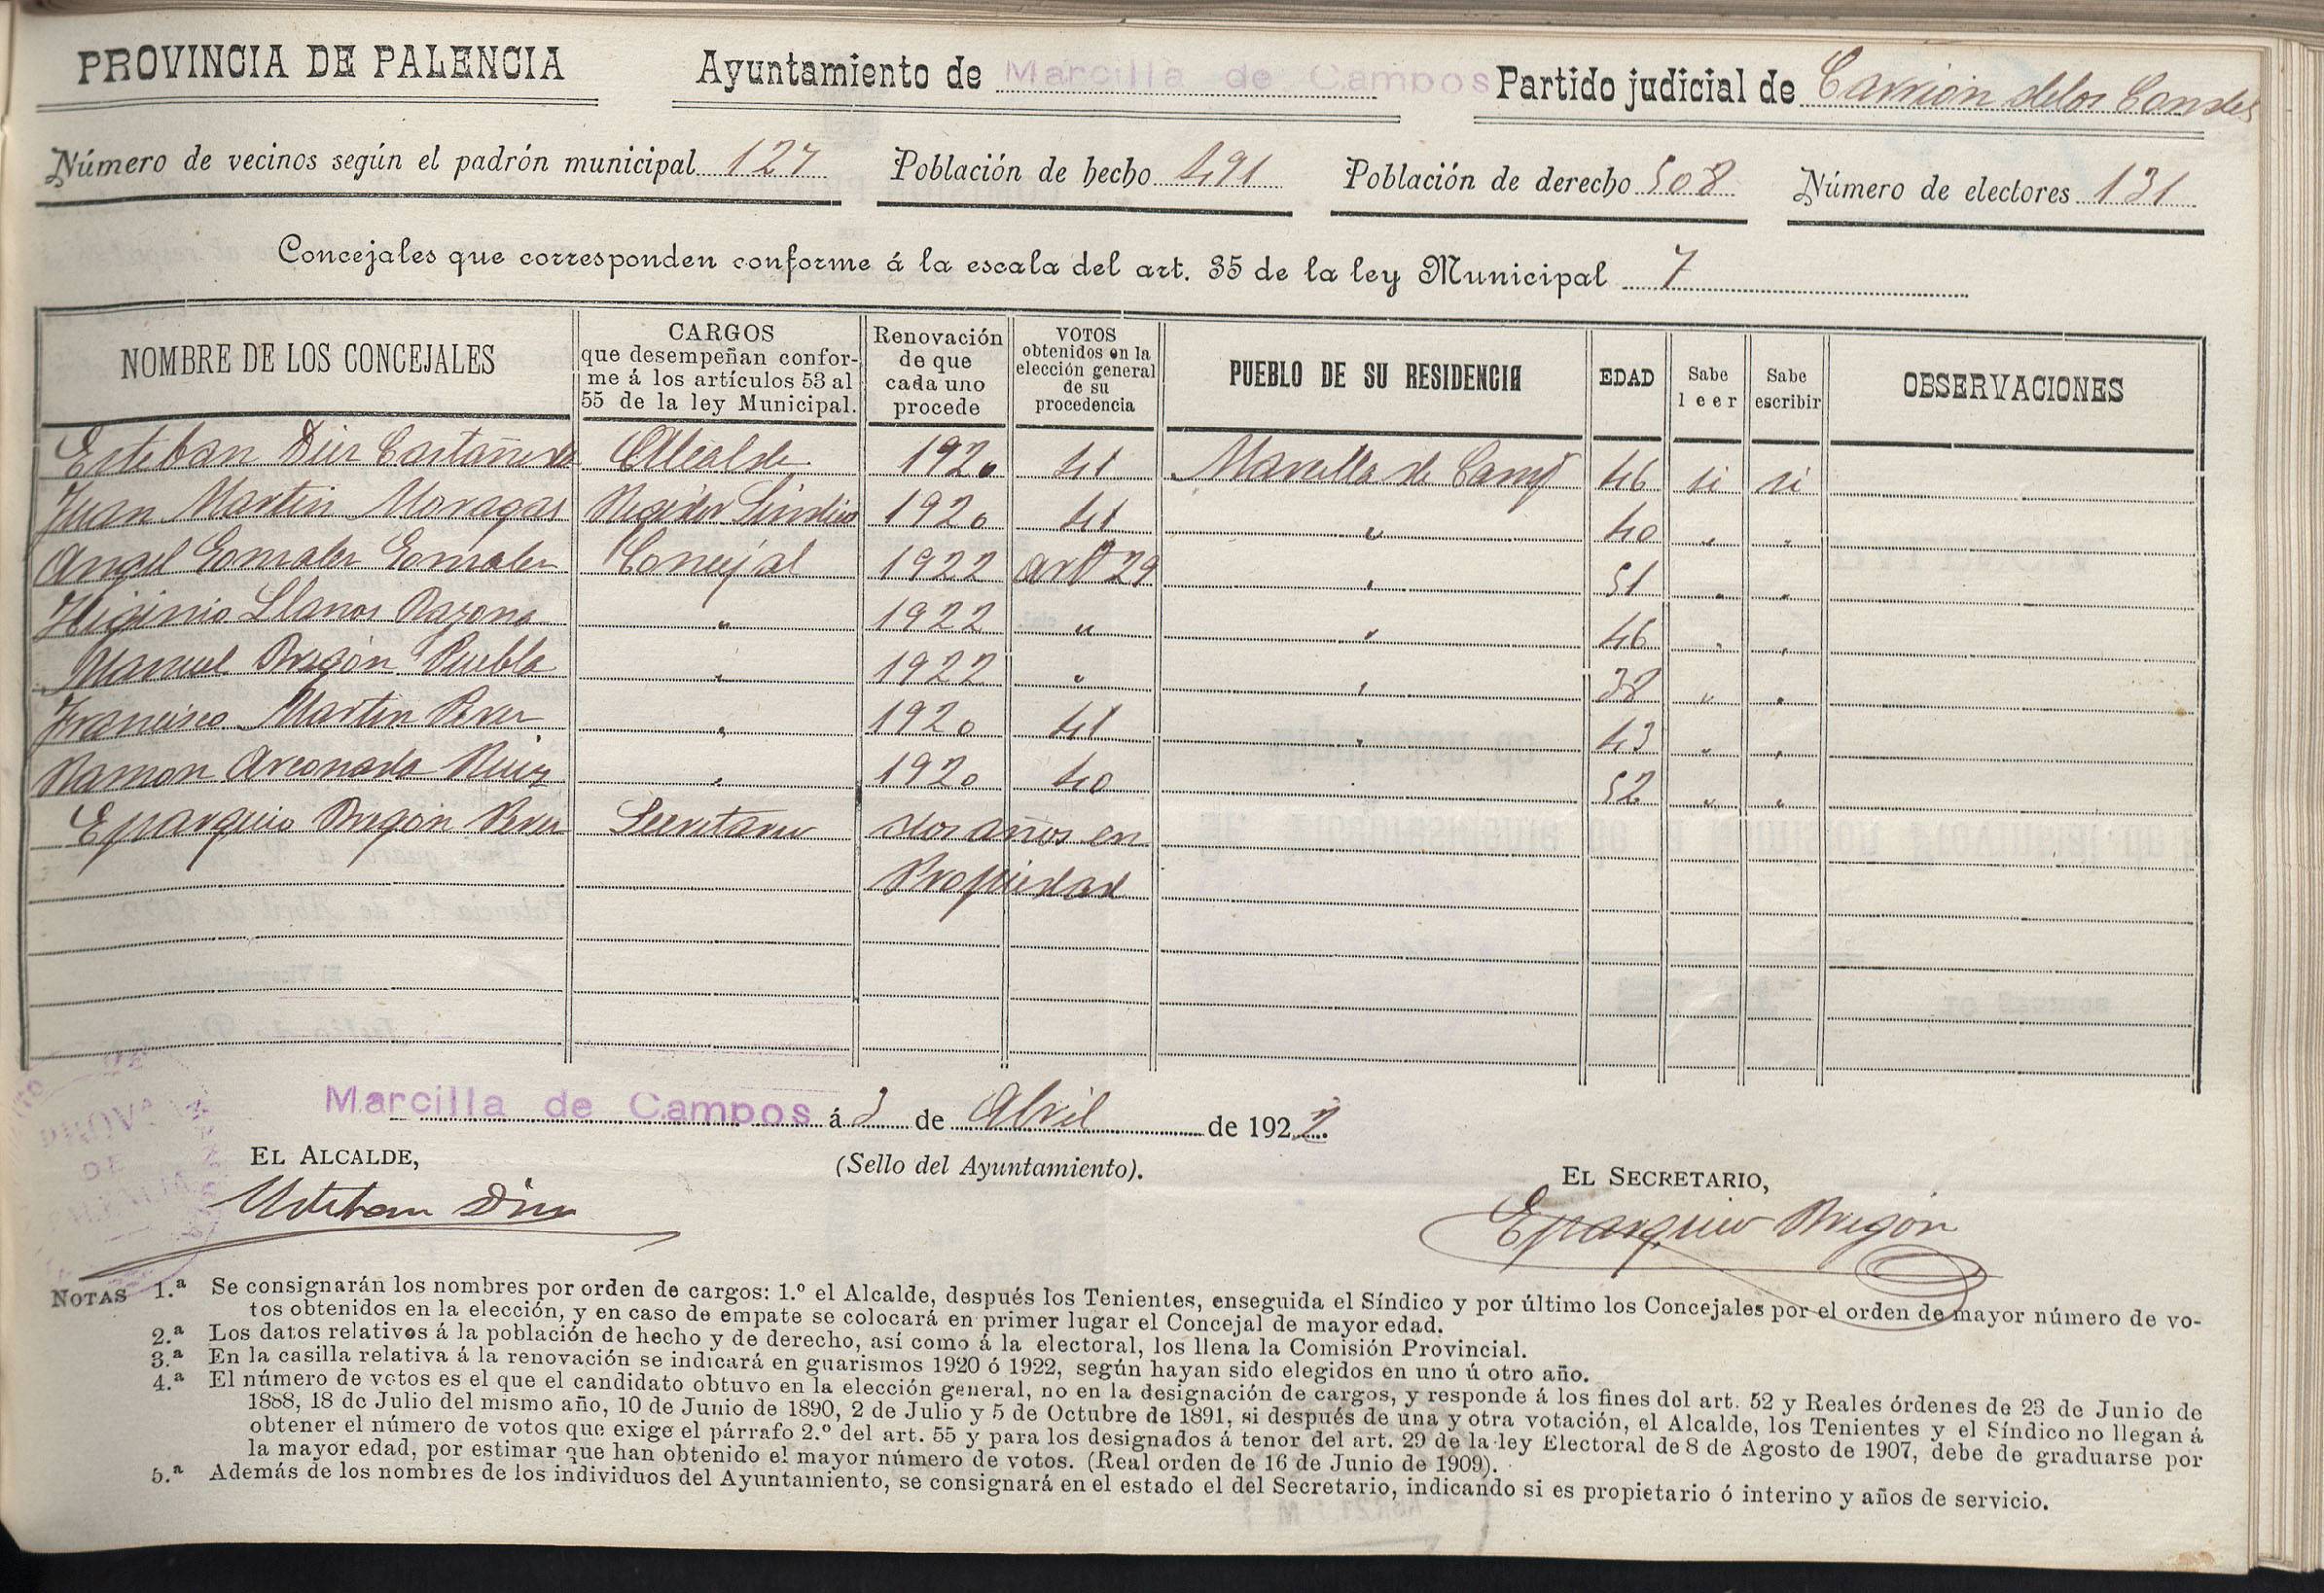 PROVINCIA DE PALENCIA Ayuntamiento de Marcilla de Campos Partido judicial de Carrión de los Condes
Número de vecinos según el padrón municipal 127 Población de hecho 491 Población de derecho 508 Número de electores 131
Concejales que corresponden conforme á la escala del art. 35 de la ley Municipal 7
NOMBRE DE LOS CONCEJALES
CARGOS
que desempeñan confor-
me á los artículos 53 al
55 de la ley Municipal.
Renovación
de que
cada uno
procede
VOTOS
obtenidos en la
elección general
de su
procedencia
PUEBLO DE SU RESIDENCIA
EDAD
Sabe
leer
Sabe
escribir
OBSERVACIONES
Esteban Diez Castañeda Alcalde 1920 41 Marcilla de Camp 46 si si
Juan Martin Moragas Regidor Sindico 1920 41 " 40 " "
Angel Gonzalez Gonzalez Concejal 1922 artº 29 " 51 " "
Higinio Llanos " 1922 " " 46 " "
Manuel Bregón Puebla " 1922 " " 38 " "
Francisco Martin Perez " 1920 41 " 43 " "
Ramon Arconada Ruiz " 1920 40 52 " "
Eparquio Bregón Perez Secretario dos años en
Propiedad
Marcilla de Campos á 2 de Abril de 1922.
EL ALCALDE,
(Sello del Ayuntamiento).
EL SECRETARIO,
Esteban Diez
Eparquio Bregón
NOTAS 1.ª Se consignarán los nombres por orden de cargos: 1.º el Alcalde, después los Tenientes, enseguida el Síndico y por último los Concejales por el orden de mayor número de vo-
tos obtenidos en la elección, y en caso de empate se colocará en primer lugar el Concejal de mayor edad.
2.ª Los datos relativos á la población de hecho y de derecho, así como á la electoral, los llena la Comisión Provincial.
3.ª En la casilla relativa á la renovación se indicará en guarismos 1920 ó 1922, según hayan sido elegidos en uno ú otro año.
4.ª El número de votos es el que el candidato obtuvo en la elección general, no en la designación de cargos, y responde á los fines del art. 52 y Reales órdenes de 23 de Junio de
1888, 18 de Julio del mismo año, 10 de Junio de 1890, 2 de Julio y 5 de Octubre de 1891, si después de una y otra votación, el Alcalde, los Tenientes y el Síndico no llegan á
obtener el número de votos que exige el párrafo 2.º del art. 55 y para los designados á tenor del art. 29 de la ley Electoral de 8 de Agosto de 1907, debe de graduarse por
la mayor edad, por estimar que han obtenido el mayor número de votos. (Real orden de 16 de Junio de 1909).
5.ª Además de los nombres de los individuos del Ayuntamiento, se consignará en el estado el del Secretario, indicando si es propietario ó interino y años de servicio.